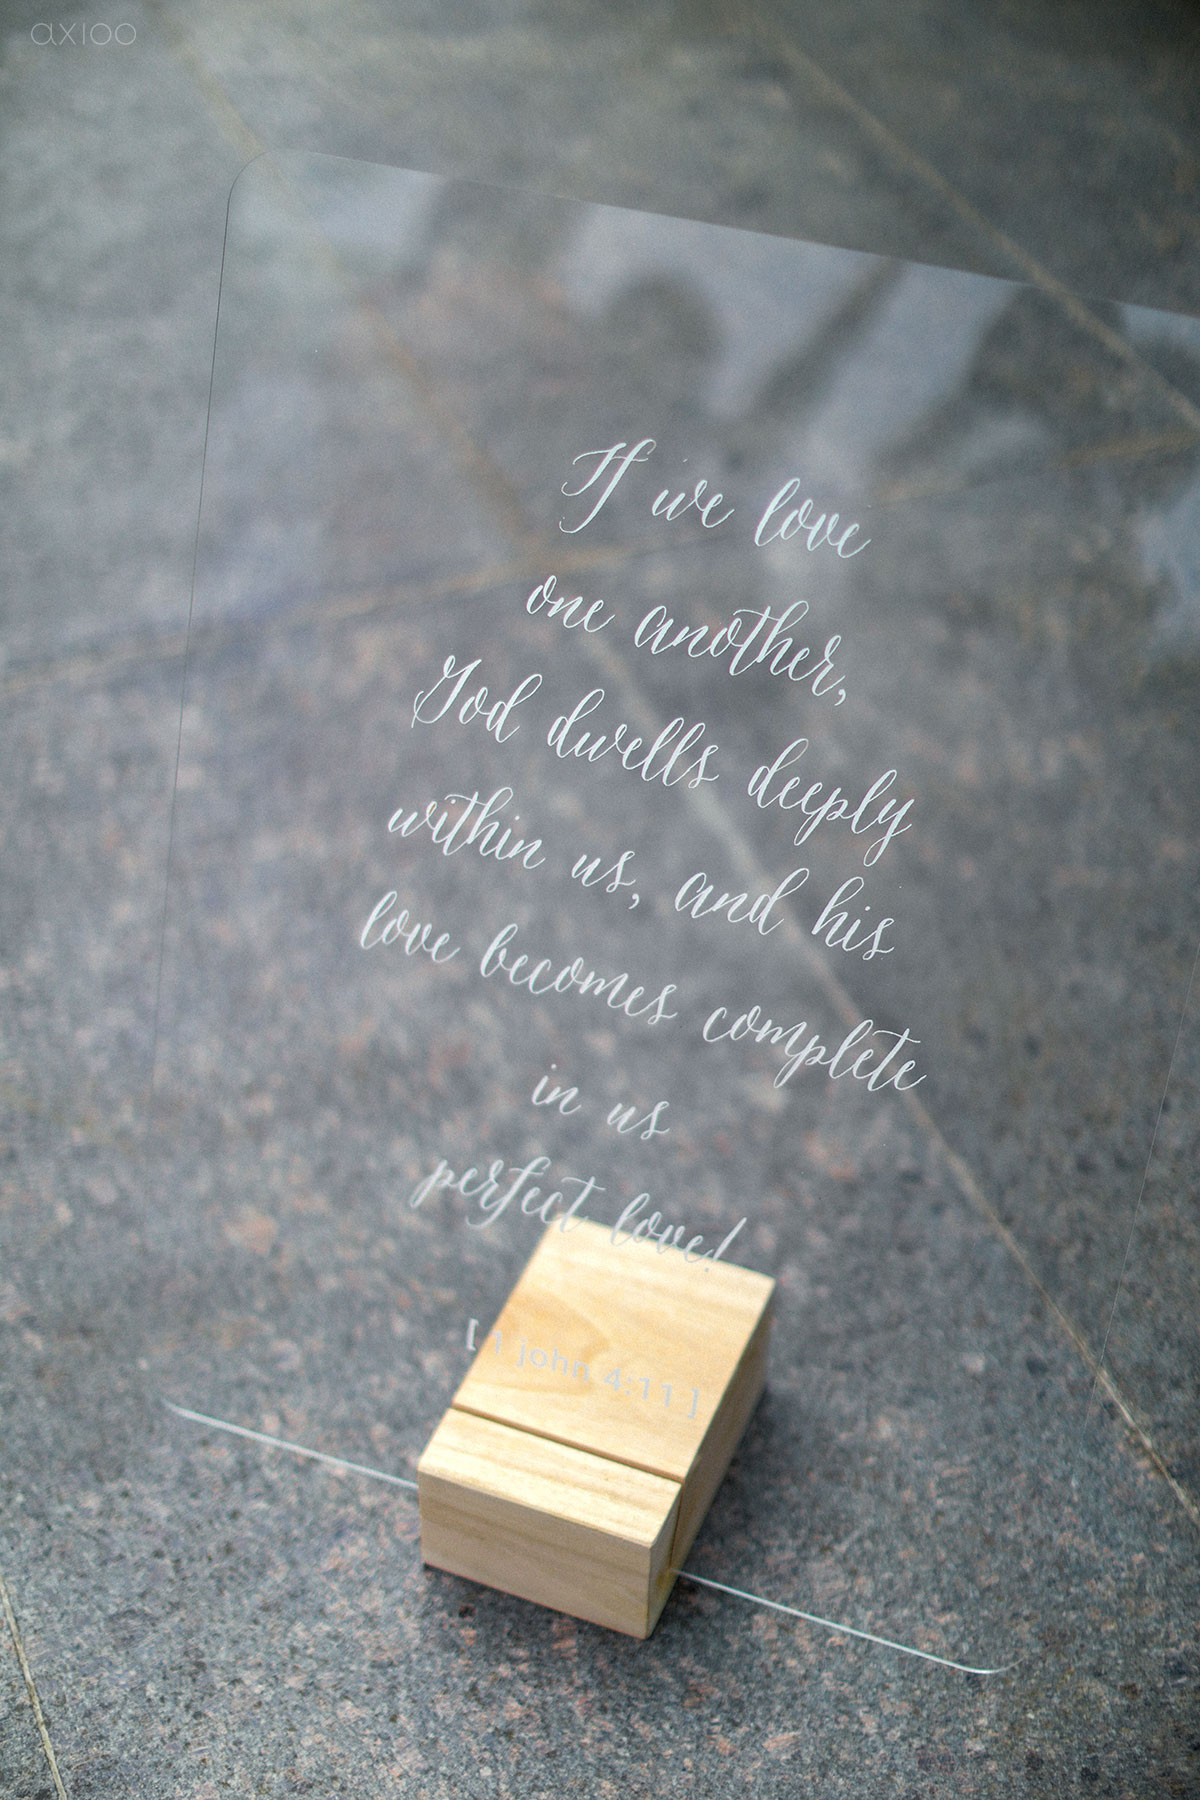 axioo
If we love
one another,
God dwells deeply
within us, and his
love becomes complete
in us
perfect love!
[ 1 john 4:11 ]